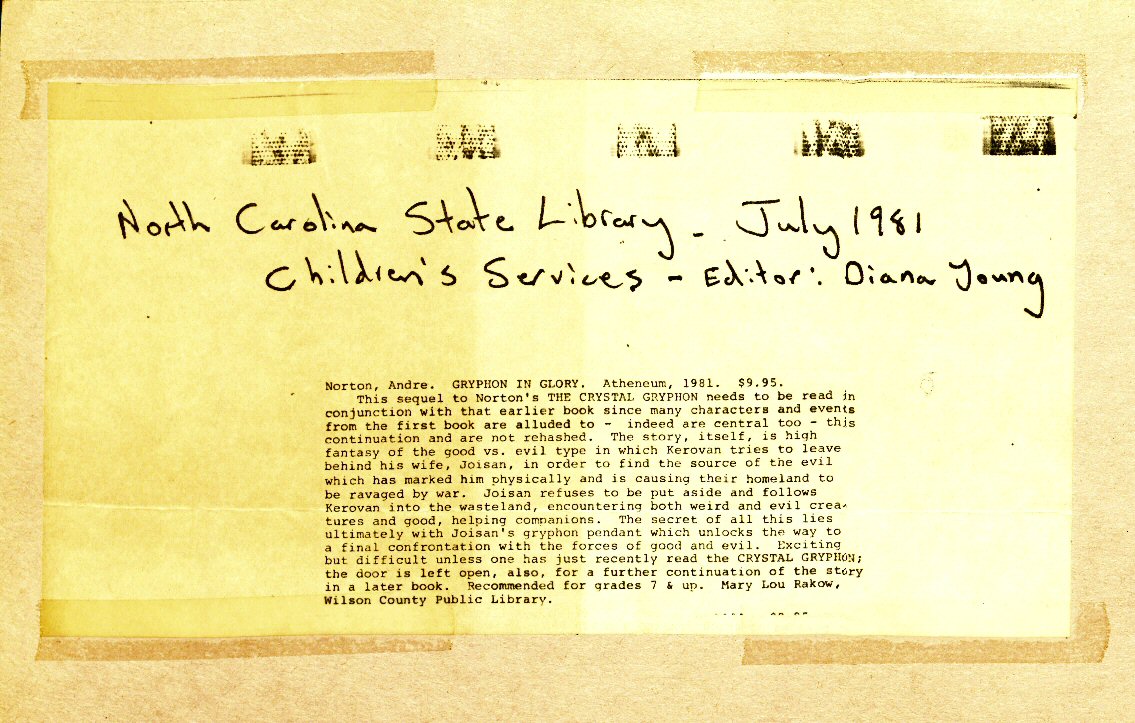 North Carolina State Library - July 1981
Children's Services - Editor: Diana Young
Norton, Andre. GRYPHON IN GLORY. Atheneum, 1981. $9.95.
This sequel to Norton's THE CRYSTAL GRYPHON needs to be read in
conjunction with that earlier book since many characters and events
from the first book are alluded to - indeed are central too - this
continuation and are not rehashed. The story, itself, is high
fantasy of the good vs. evil type in which Kerovan tries to leave
behind his wife, Joisan, in order to find the source of the evil
which has marked him physically and is causing their homeland to
be ravaged by war. Joisan refuses to be put aside and follows
Kerovan into the wasteland, encountering both weird and evil crea-
tures and good, helping companions. The secret of all this lies
ultimately with Joisan's gryphon pendant which unlocks the way to
a final confrontation with the forces of good and evil. Exciting
but difficult unless one has just recently read the CRYSTAL GRYPHON;
the door is left open, also, for a further continuation of the story
in a later book. Recommended for grades 7 & up. Mary Lou Rakow,
Wilson County Public Library.